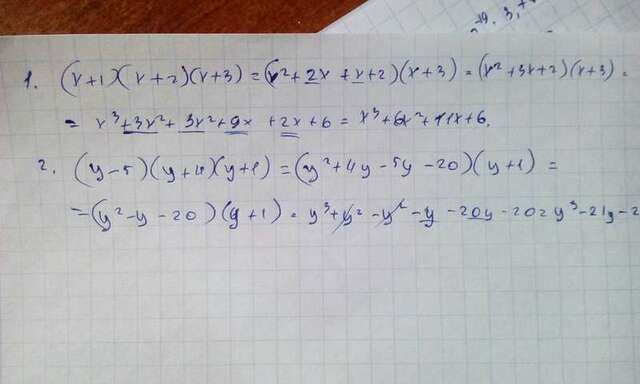 1. (x+1)(x+2)(x+3) = (x²+2x+x+2)(x+3) = (x²+3x+2)(x+3) =
= x³+3x²+3x²+9x+2x+6 = x³+6x²+11x+6.
2. (y-5)(y+4)(y+1) = (y²+4y-5y-20)(y+1) =
= (y²-y-20)(y+1) = y³+y²-y²-y-20y-20= y³-21y-2